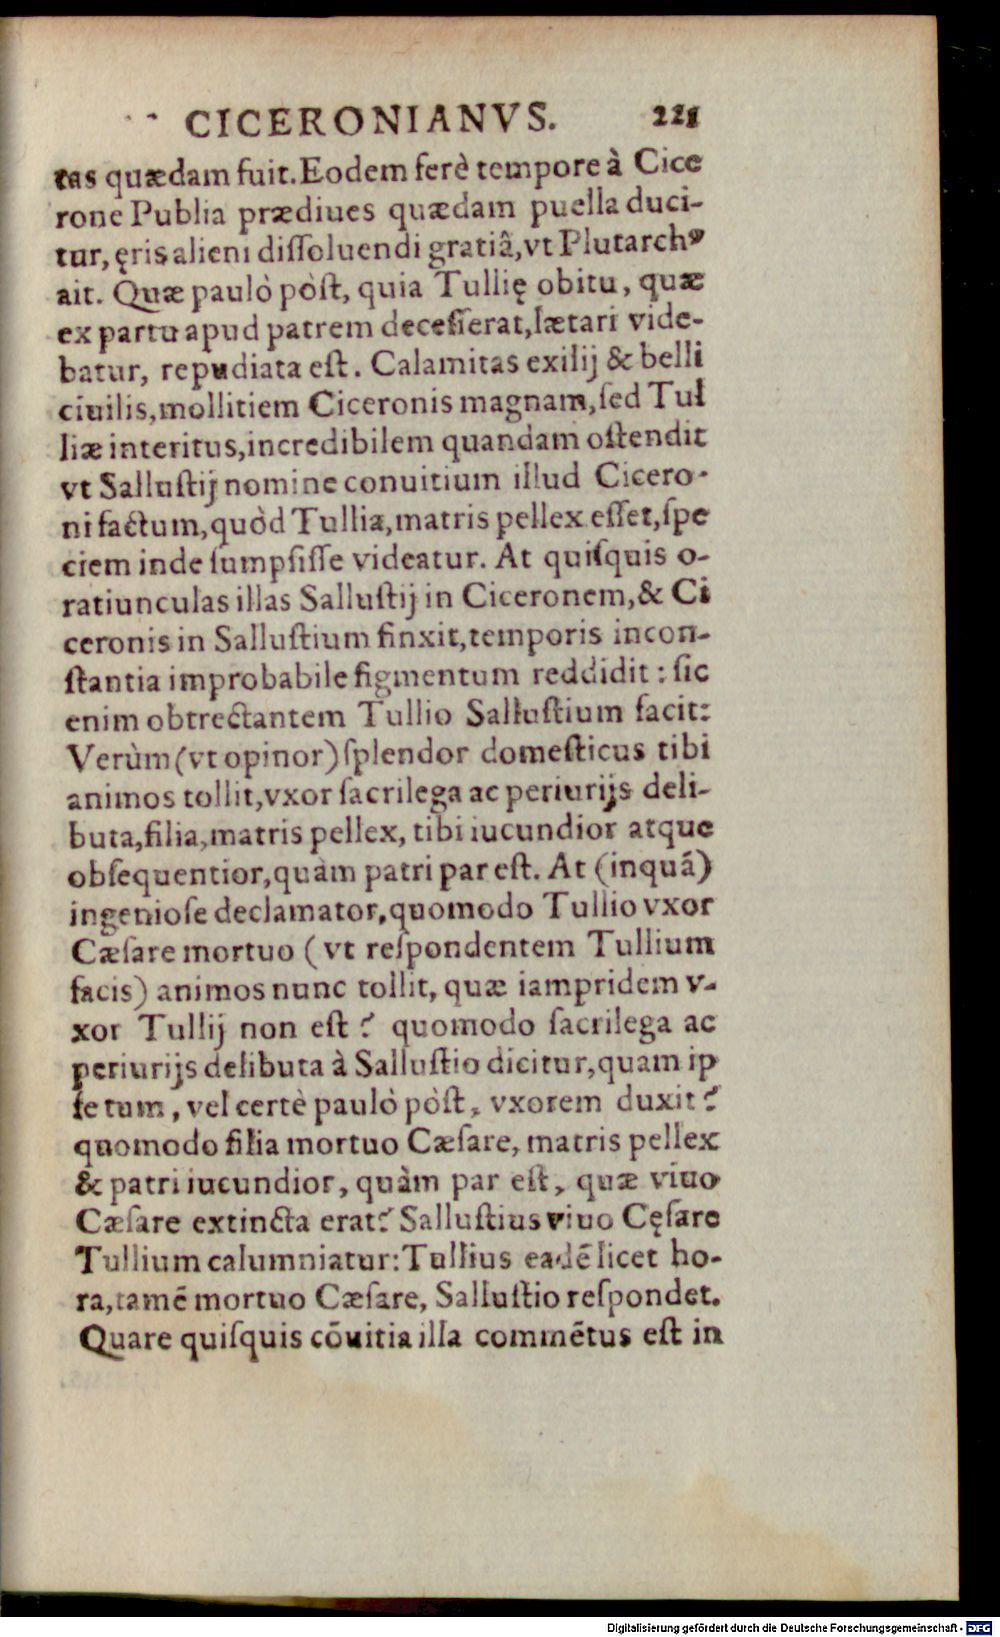 CICERONIANVS. 221
tas quædam fuit. Eodem ferè tempore à Cice
rone Publia prædiues quædam puella duci-
tur, ęris alieni dissoluendi gratiâ, vt Plutarchꝰ
ait. Quæ paulò pòst, quia Tullię obitu, quæ
ex partu apud patrem decesserat, lætari vide-
batur, repudiata est. Calamitas exilij & belli
ciuilis, mollitiem Ciceronis magnam, sed Tul
liæ interitus, incredibilem quandam ostendit
vt Sallustij nomine conuitium illud Cicero-
ni factum, quòd Tullia, matris pellex esset, spe
ciem inde sumpsisse videatur. At quisquis o-
ratiunculas illas Sallustij in Ciceronem, & Ci
ceronis in Sallustium finxit, temporis incon-
stantia improbabile figmentum reddidit: sic
enim obtrectantem Tullio Sallustium facit:
Verùm (vt opinor) splendor domesticus tibi
animos tollit, vxor sacrilega ac periurijs deli-
buta, filia, matris pellex, tibi iucundior atque
obsequentior, quàm patri par est. At (inquã)
ingeniose declamator, quomodo Tullio vxor
Cæsare mortuo (vt respondentem Tullium
facis) animos nunc tollit, quæ iampridem v-
xor Tullij non est? quomodo sacrilega ac
periurijs delibuta à Sallustio dicitur, quam ip
se tum, vel certè paulò pòst, vxorem duxit?
quomodo filia mortuo Cæsare, matris pellex
& patri iucundior, quàm par est, quæ viuo
Cæsare extincta erat? Sallustius viuo Cęsare
Tullium calumniatur: Tullius eadẽ licet ho-
ra, tamẽ mortuo Cæsare, Sallustio respondet.
Quare quisquis cõuitia illa commẽtus est in
Digitalisierung gefördert durch die Deutsche Forschungsgemeinschaft - DFG